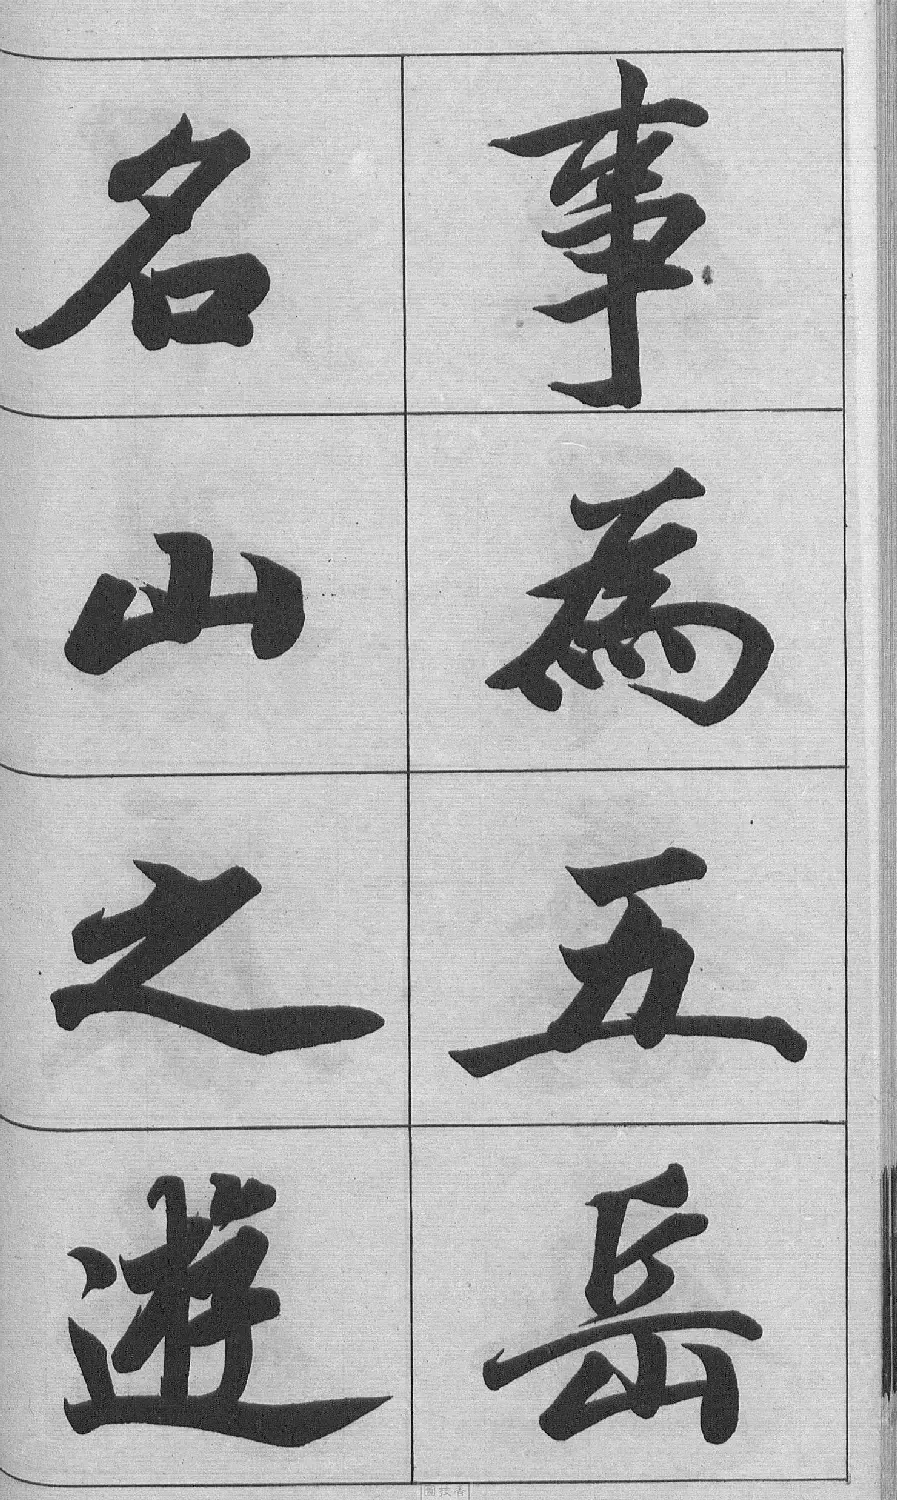 事為五岳
名山之遊